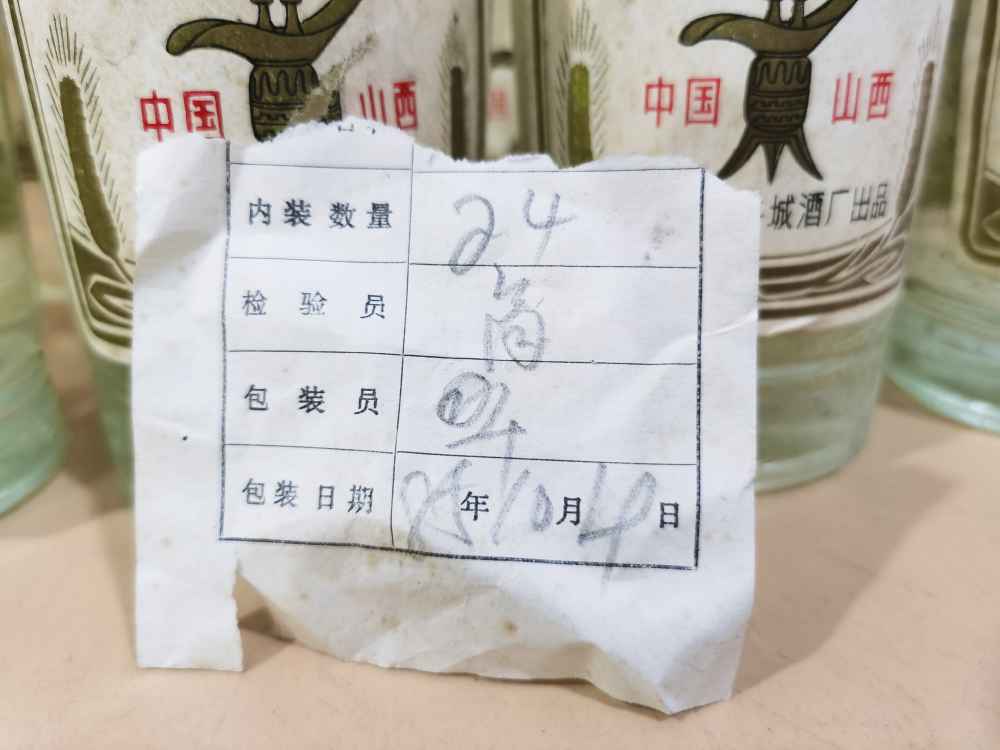 中国 山西
中国 山西
城酒厂出品
内装数量 24
检验员
包装员
包装日期 85年10月19日